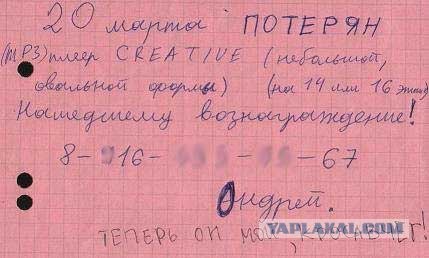 20 марта ПОТЕРЯН
(MP3) плеер CREATIVE (небольшой,
овальной формы) (на 14 или 16 этаже)
Нашедшему вознаграждение!
8-916- - -67
Андрей.
ТЕПЕРЬ ОН МОЙ,
YAPLAKAL.COM